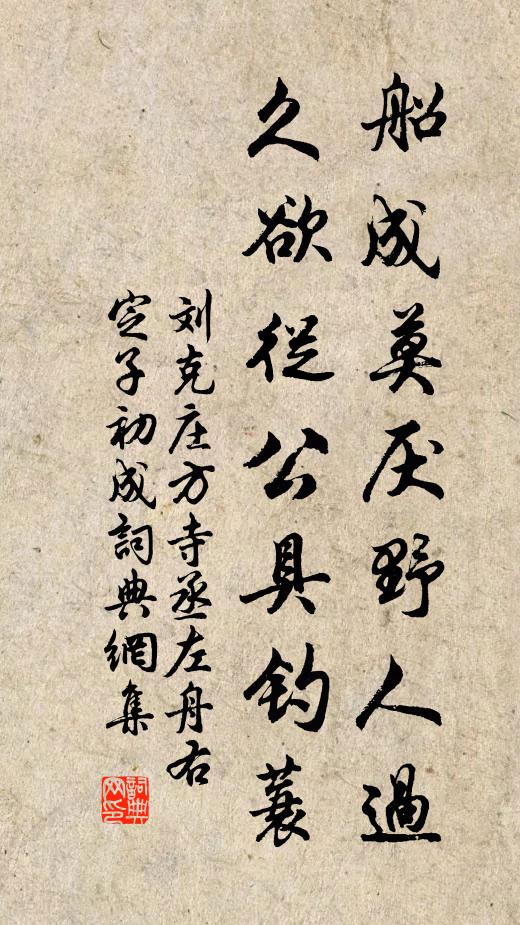 船成莫厌野人過
久欲從公具钓蓑
刘克庄方寺丞左舟右
定子初成詞典網集
詞典网印